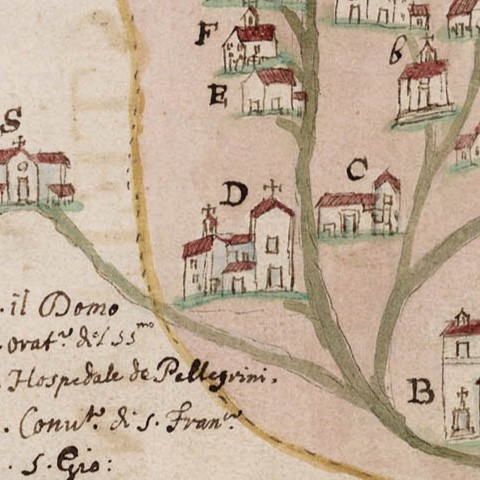 F
6
E
S
D
C
. il Domo
. orat.º del SS.mo
. Hospedale de Pellegrini.
B
. Conv.to di S. Fran.co
. S. Gio: